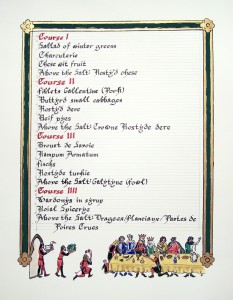 Course I
Sallad of winter greens
Charcuterie
Chese wit fruit
Above the Salt/ Rostyd chese
Course II
Fillets Gallentine (Pork)
Buttyrd small cabbages
Rostyd dere
Beif pyes
Above the Salt/ Crowne Rostyde dere
Course III
Brouet de Savoie
Hampum Armatum
Fische
Rostyde turkie
Above the Salt/ Galytyne (fowl)
Course IIII
Wardonys in syrup
Roial Spicerye
Above the Salt/ Dragees/Plansians/ Pastes de
Poires Crues